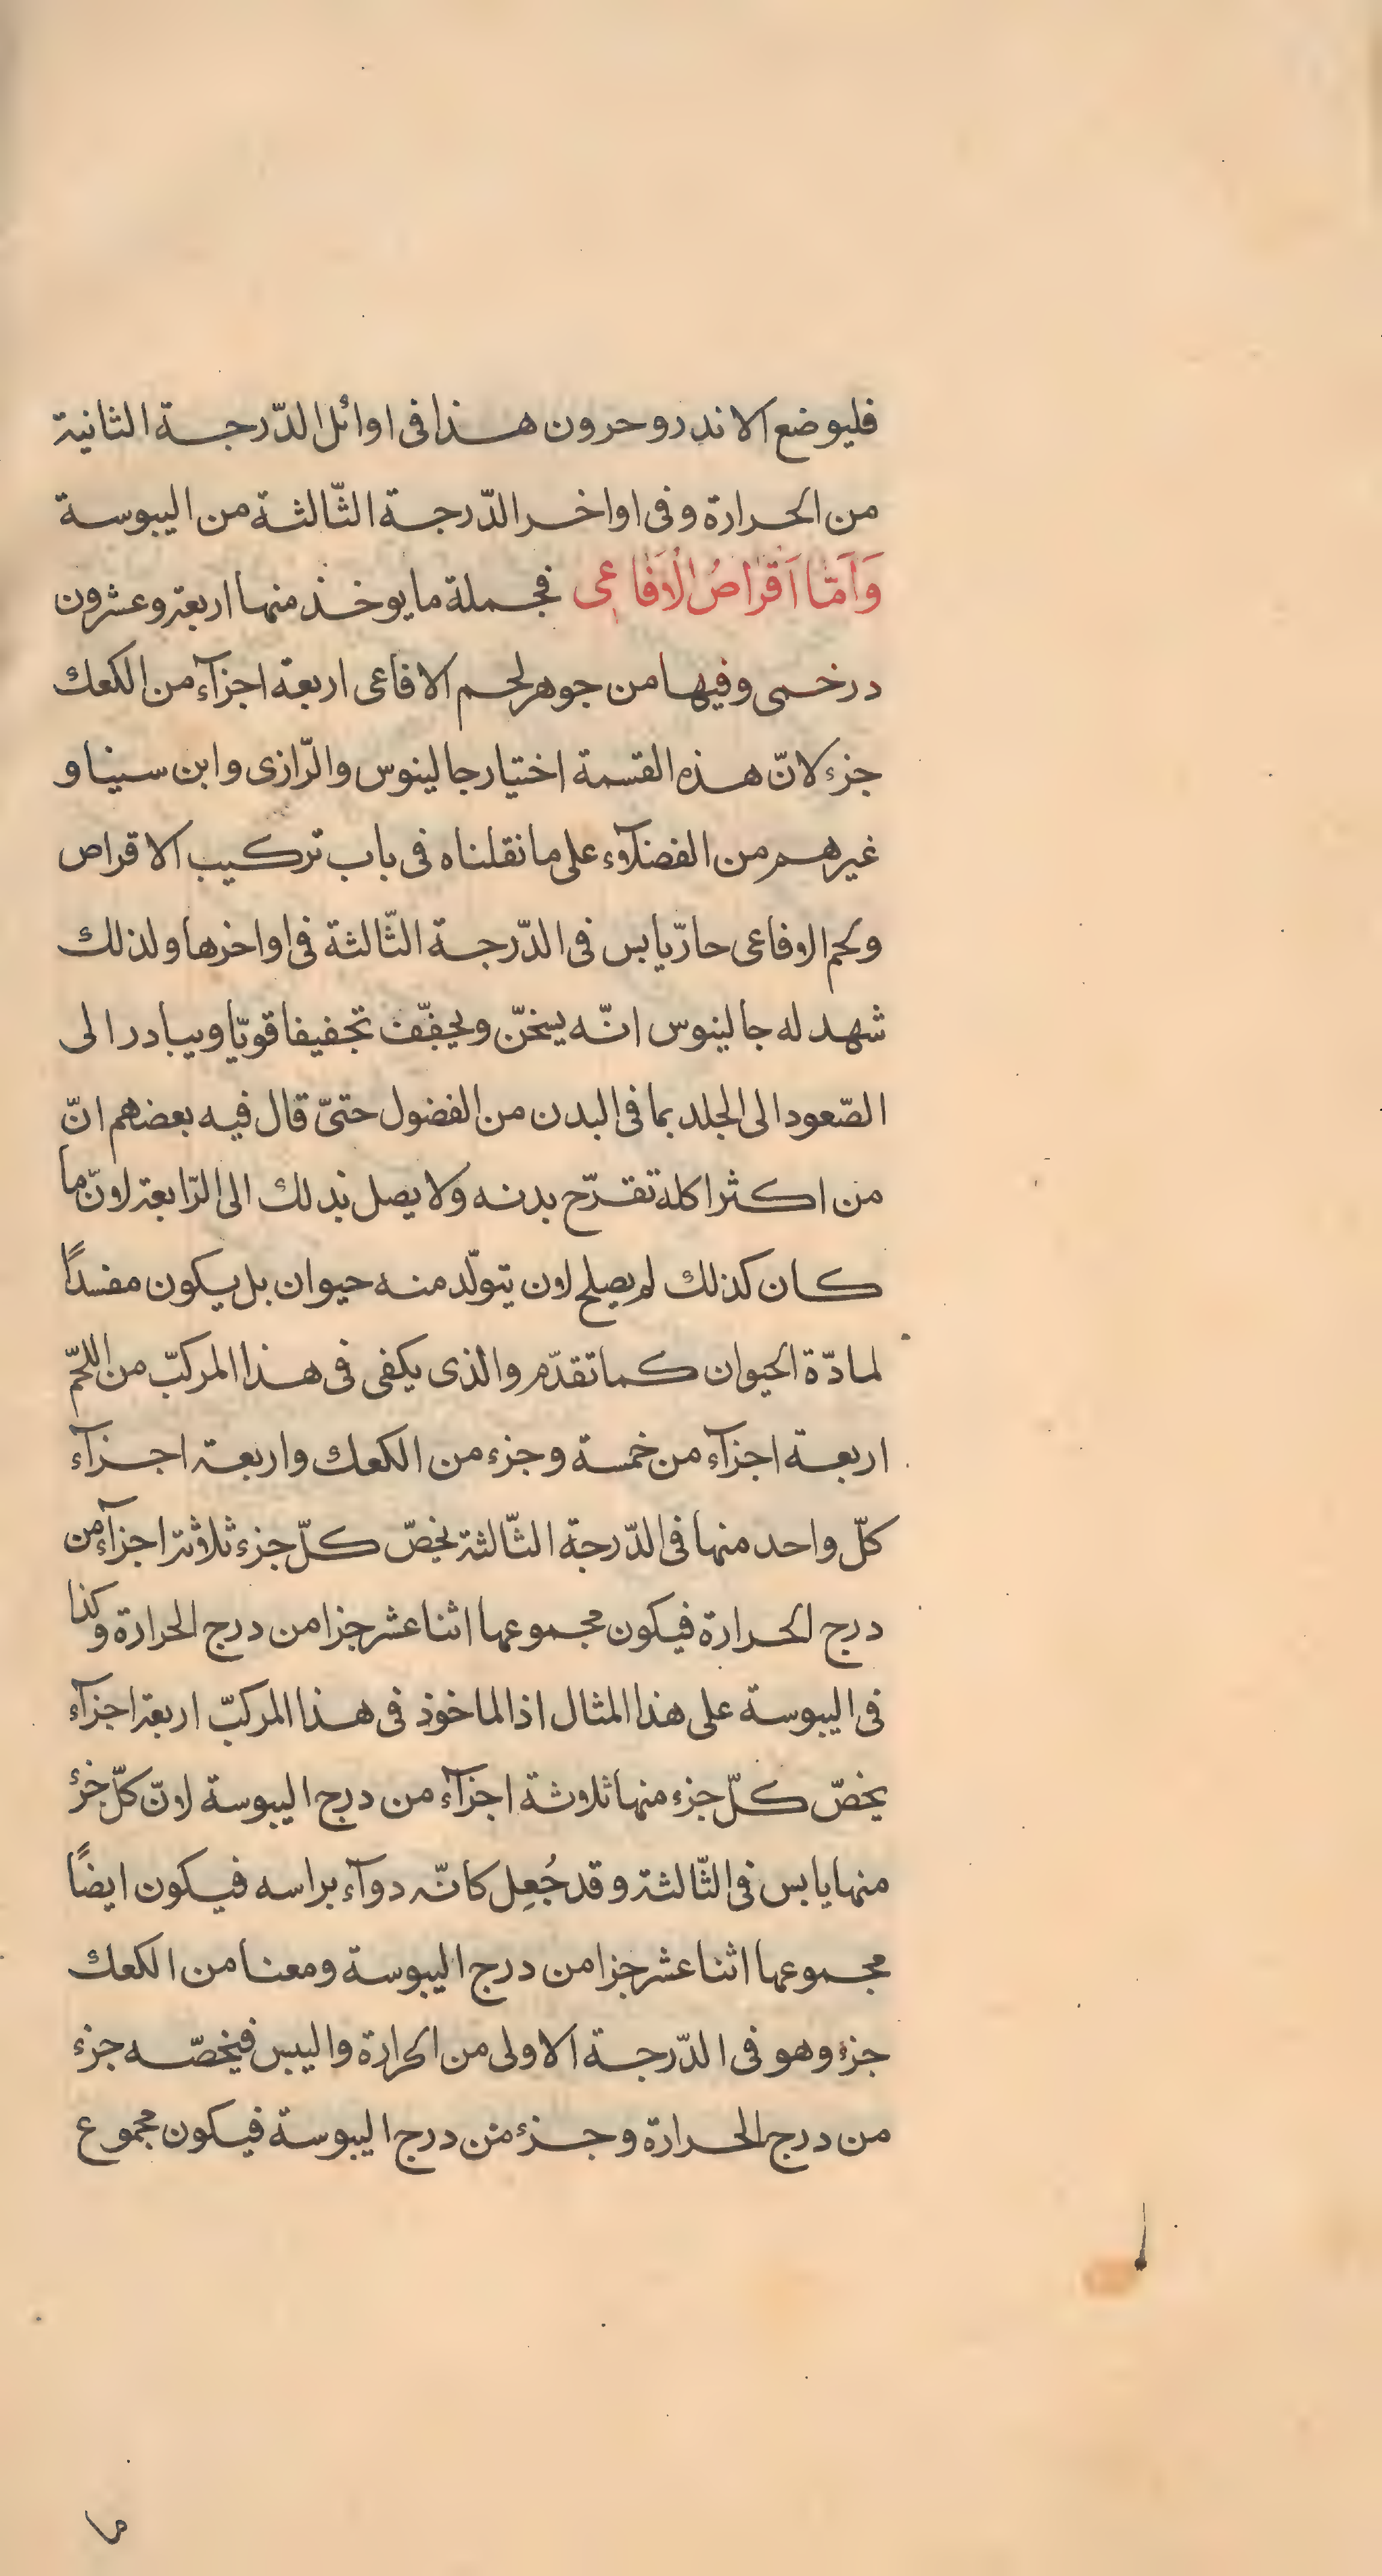 فليوضع الاندروحرون هذا فى اوائل الدّرجة الثانية
من الحرارة وفى اواخر الدّرجة الثّالثة من اليبوسة
وَاَمّا اَقْرَاصُ الْاَفَاعِى فجملة ما يوخذ منها اربعة وعشرون
درخمى وفيها من جوهر لحم الافاعى اربعة اجزآء من الكعك
جزء لانّ هذه القسمة اختيار جالينوس والرّازى وابن سينا و
غيرهم من الفضلآء على ما نقلناه فى باب تركيب الاقراص
ولحم الافاعى حارّ يابس فى الدّرجة الثّالثة فى اواخرها ولذلك
شهد له جالينوس انّه يسخّن ويجفّف تجفيفا قويّا ويبادر الى
الصّعود الى الجلد بما فى البدن من الفضول حتىّ قال فيه بعضهم انّ
من اكثر اكله تقرّح بدنه ولا يصل بذلك الى الرّابعة لانّ ما
كان كذلك لم يصلح لان يتولّد منه حيوان بل يكون مفسداً
لمادّة الحيوان كما تقدّم والذى يكفى فى هذا المركبّ من اللحّم
اربعة اجزآء من خمسة وجزء من الكعك واربعة اجزآء
كلّ واحد منها فى الدّرجة الثّالثة يخصّ كلّ جزء ثلاثة اجزآء من
درج الحرارة فيكون مجموعها اثنا عشر جزا من درج الحرارة وكذا
فى اليبوسة على هذا المثال اذ الماخوذ فى هذا المركبّ اربعة اجزآء
يخصّ كلّ جزء منها ثلاثة اجزآء من درج اليبوسة لانّ كلّ جزء
منها يابس فى الثّالثة وقد جُعِل كانّه دوآء براسه فيكون ايضًا
مجموعها اثنا عشر جزا من درج اليبوسة ومعنا من الكعك
جزء وهو فى الدّرجة الاولى من الحرارة واليبس فيخصّه جزء
من درج الحرارة وجزء من درج اليبوسة فيكون مجموع
ما